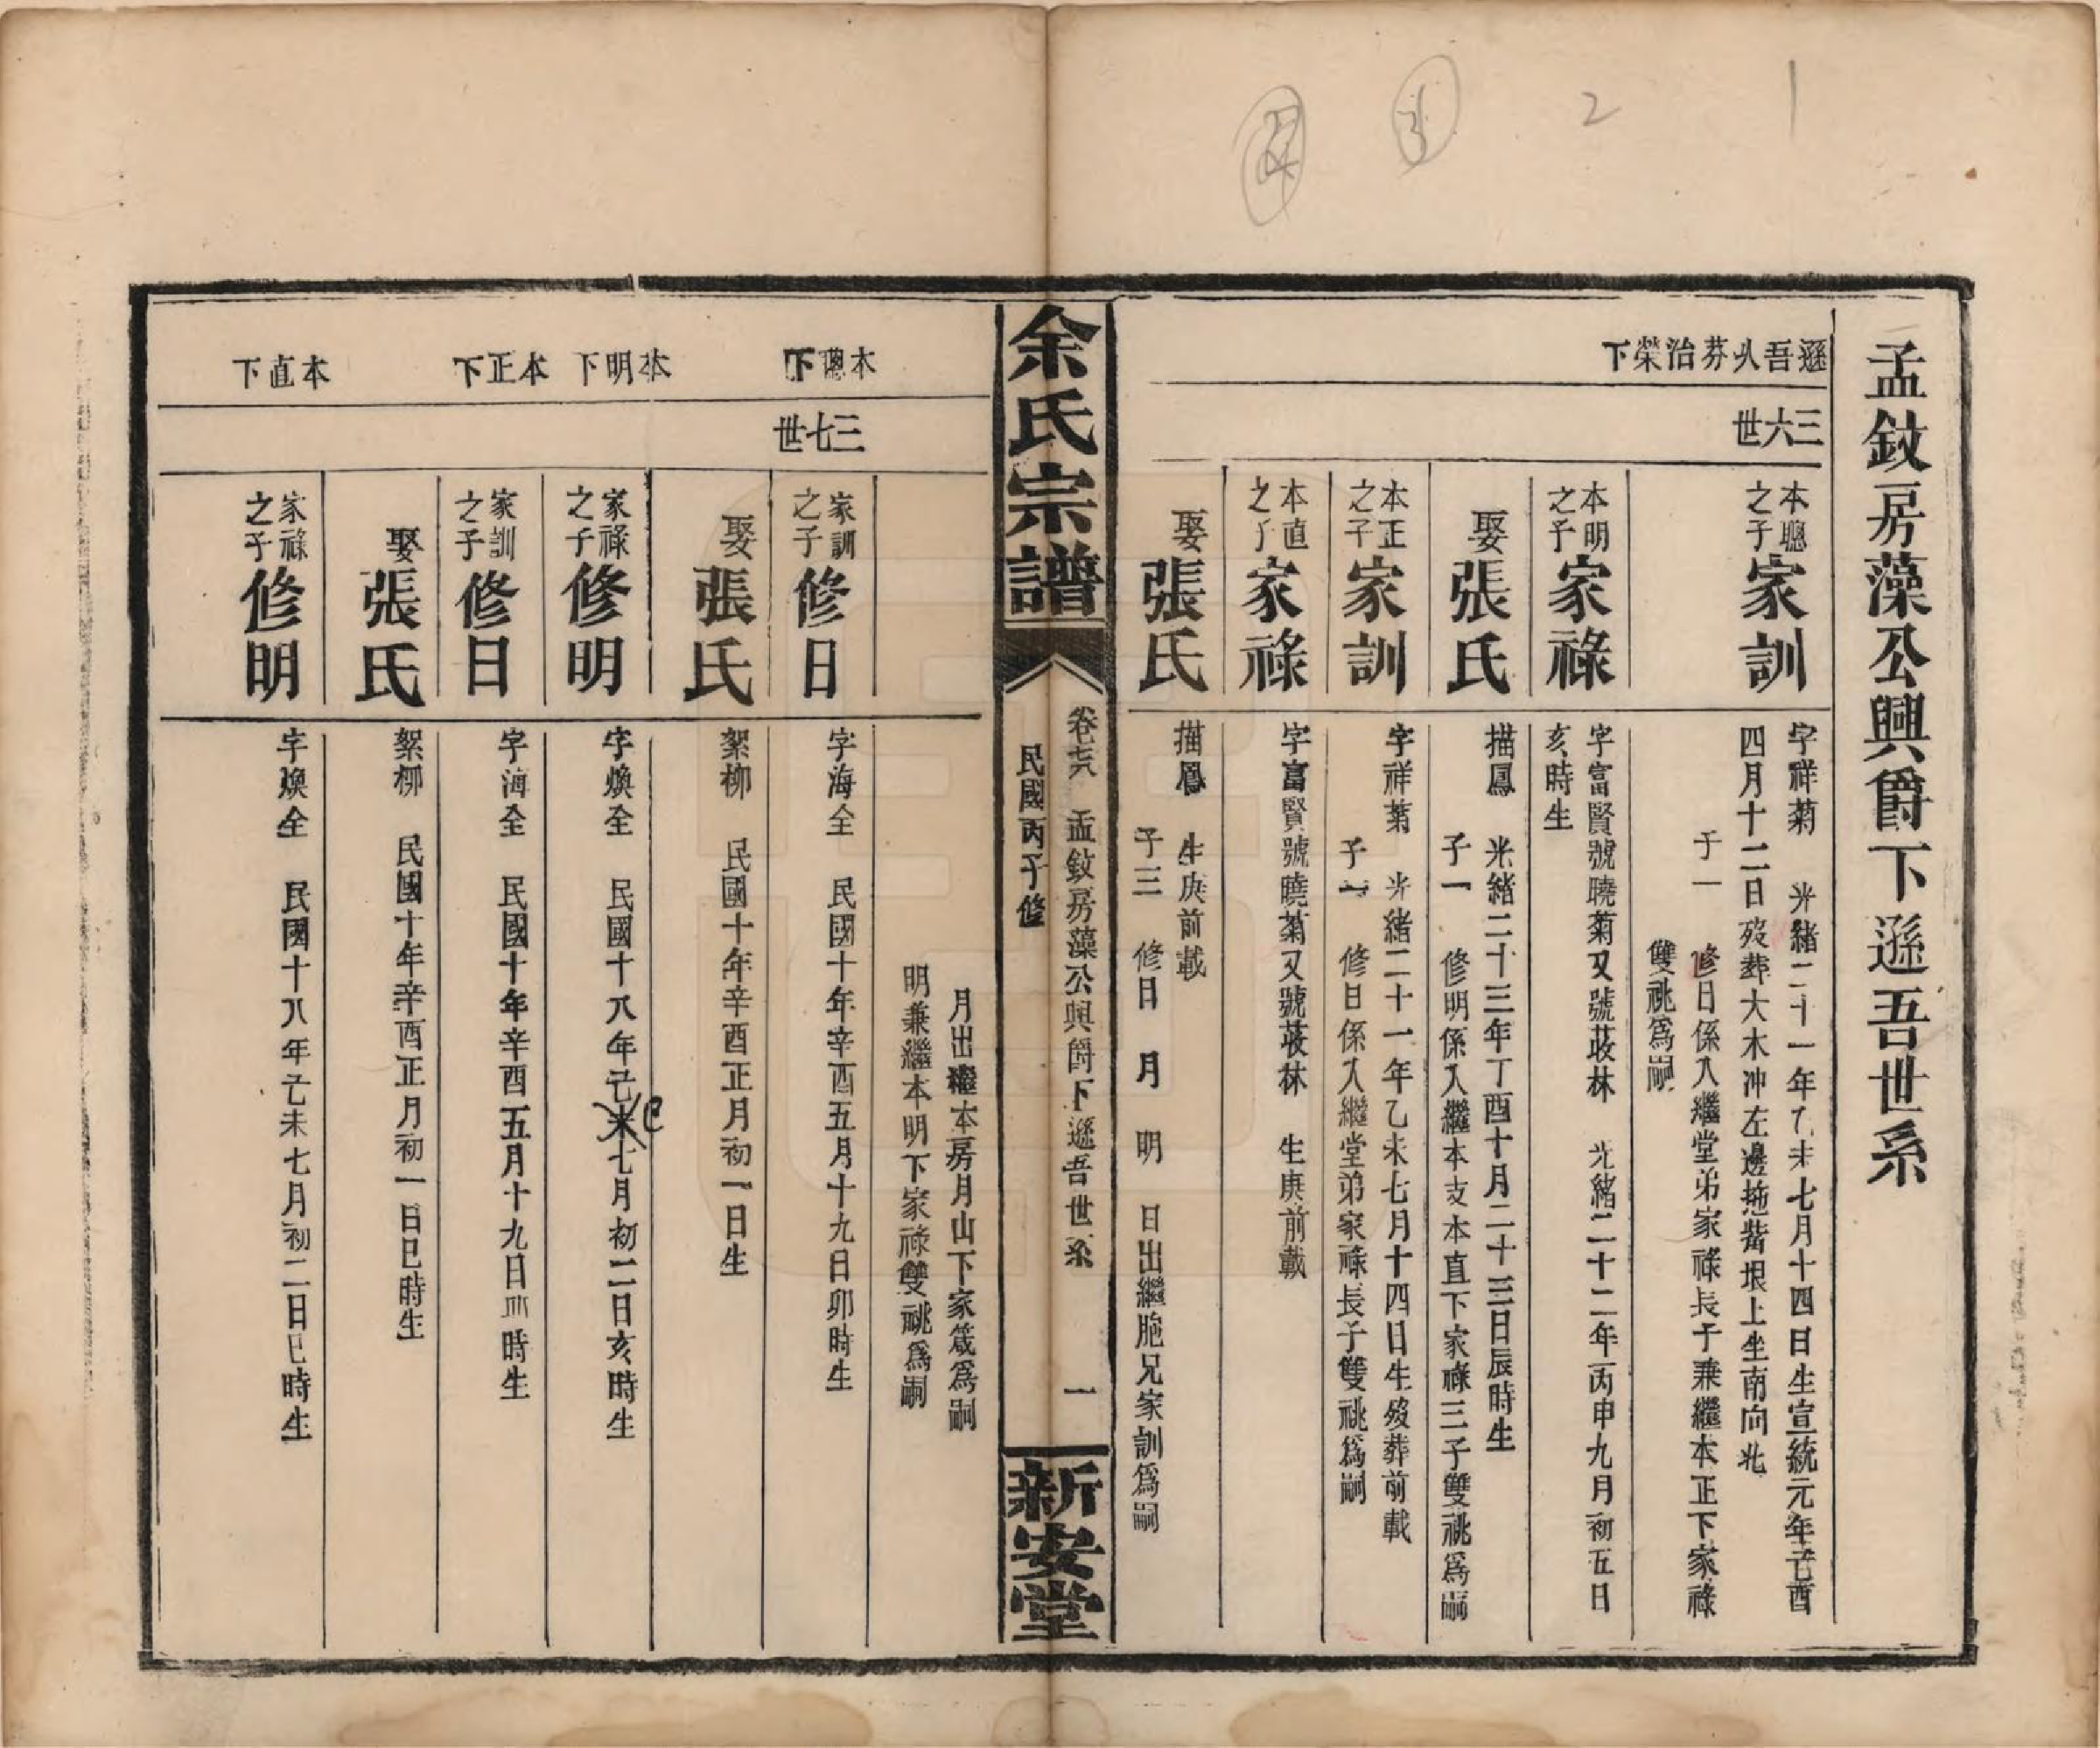 1
2
3
4
孟敍房藻公興爵下遜吾世系
遜吾从芬治榮下
三六世
本聰之子家訓
字祥菊 光緒二十一年乙未七月十四日生宣統元年己酉
四月十二日歿葬大木冲左邊拖嘴垠上坐南向北
子一 修日係入繼堂弟家祿長子兼繼本正下家祿
雙祧爲嗣
本明之子家祿
字富賢號曉菊又號荍林 光緒二十二年丙申九月初五日
亥時生
娶張氏
描鳳 光緒二十三年丁酉十月二十三日辰時生
子一 修明係入繼本支本直下家祿三子雙祧爲嗣
本正之子家訓
字祥菊 光緒二十一年乙未七月十四日生歿葬前載
子一 修日係入繼堂弟家祿長子雙祧爲嗣
本直之子家祿
字富賢號曉菊又號荍林 生庚前載
娶張氏
描鳳 生庚前載
子三 修日 月 明 日出繼胞兄家訓爲嗣
余氏宗譜
卷 孟敍房藻公興爵下遜吾世系 一
民國丙子修
新安堂
月出繼本房月山下家箴爲嗣
明兼繼本明下家祿雙祧爲嗣
本聰下
三七世
家訓之子修日
字海全 民國十年辛酉五月十九日卯時生
娶張氏
絮柳 民國十年辛酉正月初一日生
本明下
家祿之子修明
字煥全 民國十八年己未七月初二日亥時生
巳
本正下
家訓之子修日
字海全 民國十年辛酉五月十九日卯時生
娶張氏
絮柳 民國十年辛酉正月初一日巳時生
本直下
家祿之子修明
字煥全 民國十八年己未七月初二日巳時生